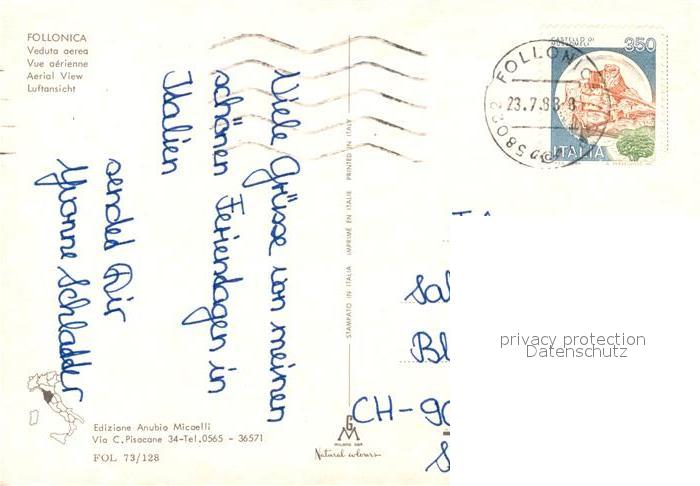 FOLLONICA
Veduta aerea
Vue aérienne
Aerial View
Luftansicht
Viele Grüsse von meinen
schönen Ferientagen in
Italien
sendet Dir
Yvonne
Edizione Anubio Micaelli
Via C. Pisacane 34-Tel.0565 - 36571
FOL 73/128
STAMPATO IN ITALIA IMPRIMÉ EN ITALIE PRINTED IN ITALY
Natural colours
CASTELLO DI
350
ITALIA
FOLLONICA
23.7.83
58022
CH-90
privacy protection
Datenschutz